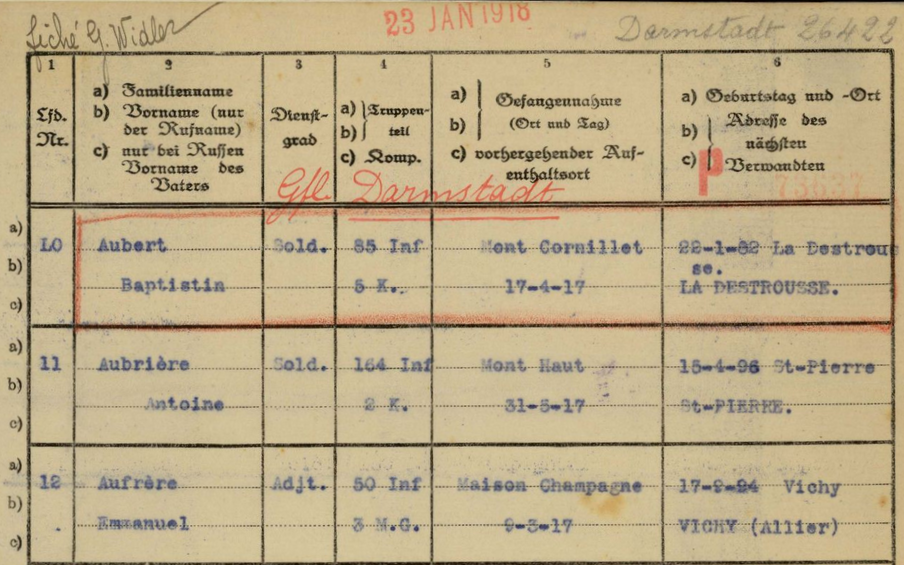 23 JAN 1918
Darmstadt 26422
1
2
3
4
5
6
Lfd.
Nr.
a) Familienname
b) Vorname (nur
der Rufname)
c) nur bei Russen
Vorname des
Vaters
Dienst-
grad
a) Truppen-
b) teil
c) Komp.
a) Gefangennahme
b) (Ort und Tag)
c) vorhergehender Auf-
enthaltsort
a) Geburtstag und -Ort
b) Adresse des
nächsten
c) Verwandten
P
73637
Gfl. Darmstadt
a)
b)
c)
LO Aubert Sold. 85 Inf Mont Cornillet 22-1-82 La Destrous
se.
Baptistin 5 K. 17-4-17 LA DESTROUSSE.
a)
b)
c)
11 Aubrière Sold. 164 Inf Mont Haut 15-4-96 St-Pierre
Antoine 2 K. 31-5-17 St-PIERRE.
a)
b)
c)
12 Aufrère Adjt. 50 Inf Maison Champagne 17-2-94 Vichy
Emmanuel 3 M.G. 9-3-17 VICHY (Allier)